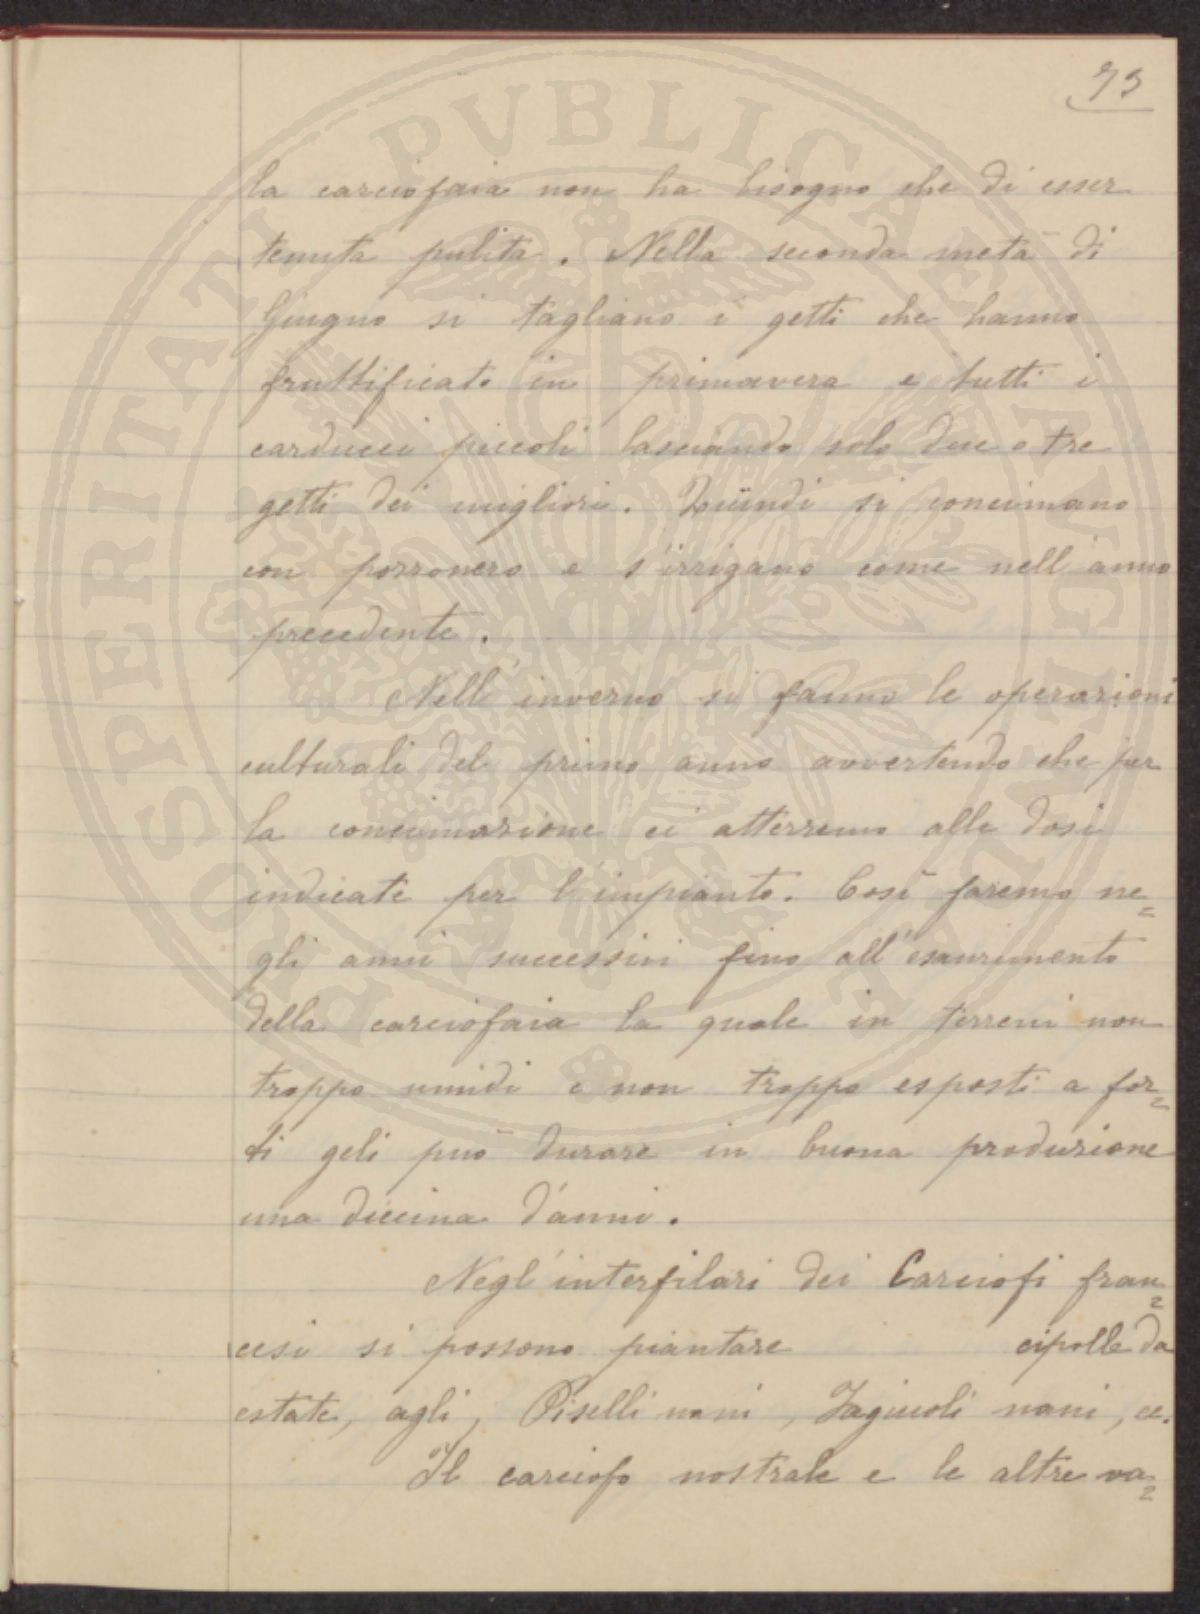 73
la carciofaia non ha bisogno che di esser
tenuta pulita. Nella seconda metà di
Giugno si tagliano i getti che hanno
fruttificato in primavera e tutti i
carducci piccoli lasciando solo due o tre
getti dei migliori. Quindi si concimano
con pozzonero e s'irrigano come nell'anno
precedente.
Nell'inverno si fanno le operazioni
culturali del primo anno avvertendo che per
la concimazione ci atterremo alle dosi
indicate per l'impianto. Così faremo ne=
gli anni successivi fino all'esaurimento
della carciofaia la quale in terreni non
troppo umidi e non troppo esposti a for=
ti geli può durare in buona produzione
una diecina d'anni.
Negl'interfilari dei Carciofi fran=
cesi si possono piantare cipolle da
estate, agli, Piselli nani, Fagiuoli nani, ec.
Il carciofo nostrale e le altre va=
PROSPERITATI PVBLICAE AVGENDAE